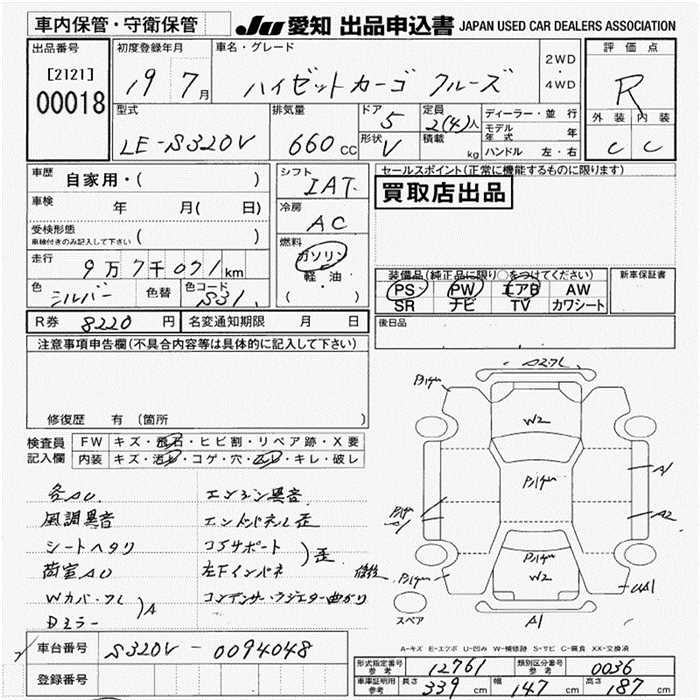 車内保管・守衛保管
JU 愛知 出品申込書 JAPAN USED CAR DEALERS ASSOCIATION
出品番号
[2121]
00018
初度登録年月
19 7月
車名・グレード
ハイゼットカーゴ クルーズ
2WD
・
4WD
評価点
R
外装 内装
C C
型式
LE-S320V
排気量
660 CC
ドア 5
形状 V
定員 2(4)人
積載 kg
ディーラー・並行
モデル年式 年
ハンドル 左・右
車歴 自家用・( )
車検 年 月( 日)
受検形態
車検付きのみ記入して下さい ( )
走行 9万7千071km
色 シルバー 色替 色コード S31
シフト
IAT
冷房
AC
燃料
ガソリン
軽・油
( )
セールスポイント(正常に機能するものに限ります)
買取店出品
装備品(純正品に限り○をつけてください)
PS PW エアB AW
SR ナビ TV カワシート
新車保証書
後日品
R券 8220 円 名変通知期限 月 日
注意事項申告欄(不具合内容等は具体的に記入して下さい)
修復歴 有 (箇所 )
検査員
記入欄
FW キズ・飛石・ヒビ割・リペア跡・X要
内装 キズ・汚レ・コゲ・穴・スレ・キレ・破レ
各AU
エンジン異音
風調異音
エンドパネル歪
シートヘタリ
コアサポート
歪
荷室AU
左Fインパネ
Wカバー・ワレ
A
コンデンサ・ラジエター曲がり
Dミラー
A2ワレ
W2
A1
A2
UA1
W2
A1
スペア
A-キズ E-エクボ U-凹み W-補修跡 S-サビ C-腐食 XX-交換済
車台番号 S320V-0094048
登録番号
形式指定番号 参考 12761
類別区分番号 参考 0036
車庫証明用 参考 長さ 339 cm 幅 147 cm 高さ 187 cm